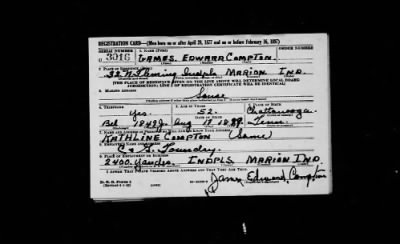 REGISTRATION CARD—(Men born on or after April 28, 1877 and on or before February 16, 1897)
SERIAL NUMBER 1. NAME (Print) ORDER NUMBER
3016 JAMES EDWARD COMPTON
2. PLACE OF RESIDENCE (Print)
32 N. Indpls MARION IND.
[THE PLACE OF RESIDENCE GIVEN ON THE LINE ABOVE WILL DETERMINE LOCAL BOARD
JURISDICTION; LINE 2 OF REGISTRATION CERTIFICATE WILL BE IDENTICAL]
3. MAILING ADDRESS
Same
4. TELEPHONE 5. AGE IN YEARS 6. PLACE OF BIRTH
Yes. 52. Chattanooga
DATE OF BIRTH
Bel 1848J. Aug 17 1889. Tenn.
7. NAME AND ADDRESS OF PERSON WHO WILL ALWAYS KNOW YOUR ADDRESS
KATHLINE COMPTON (Same)
8. EMPLOYER'S NAME AND ADDRESS
C & G. Foundry.
9. PLACE OF EMPLOYMENT OR BUSINESS
2400. Yandes. INDPLS MARION IND.
I AFFIRM THAT I HAVE VERIFIED ABOVE ANSWERS AND THAT THEY ARE TRUE.
James Edward Compton